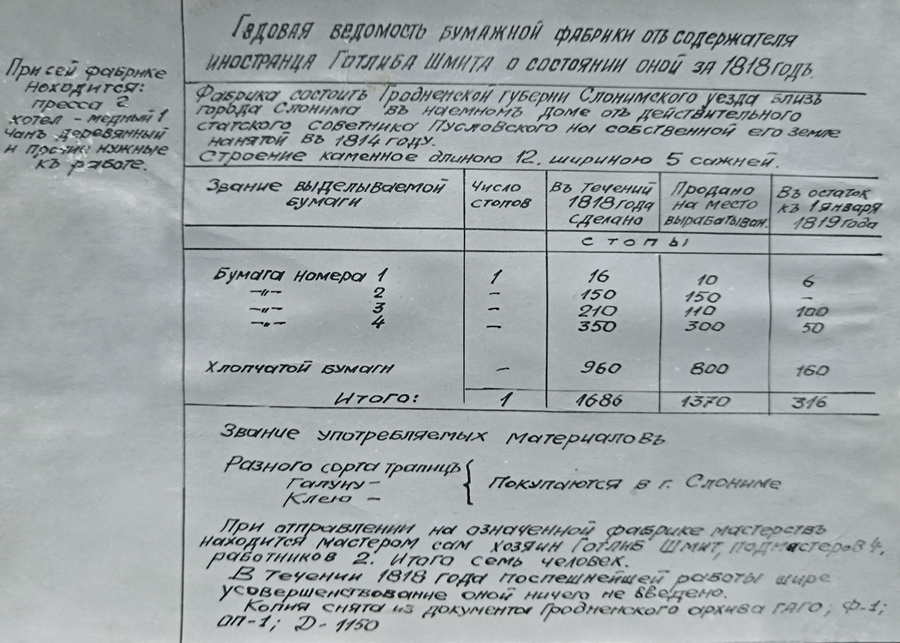 Годовая ведомость бумажной фабрики отъ содержателя
иностранца Готлиба Шмита о состоянии оной за 1818 годъ.
При сей фабрике
находится:
пресса 2
хотел - медный 1
чанъ деревянный
и нужные
къ работе.
Фабрика состоитъ Гродненской губерни Слонимского уезда близъ
города Слонима въ наемномъ доме отъ действительного
статского советника Пусловского на собственной его земле
нанятой въ 1814 году.
Строение каменное длиною 12, шириною 5 сажней.
Звание выделываемой бумаги | Число стопов | Въ течений 1818 года сделано | Продано на место вырабатыван. | Въ остаток къ 1 января 1819 года
стопы
Бумага номера 1 | 1 | 16 | 10 | 6
-"- 2 | - | 150 | 150 | -
-"- 3 | - | 210 | 110 | 100
-"- 4 | - | 350 | 300 | 50
Хлопчатой бумаги | - | 960 | 800 | 160
Итого: | 1 | 1686 | 1370 | 316
Звание употребляемых материаловъ
Разного сорта трапицъ
Галуну -
Клею -
Покупаются в г. Слониме
При отправлении на означенной фабрике мастерствъ
находится мастером сам хозяин Готлиб Шмит, подмастеров 4,
работников 2. Итого семь человек.
В течении 1818 года поспешнейшей работы
усовершенствование оной ничего не введено.
Копия снята из документы Гродненского архива ГАГО; Ф-1;
оп-1; Д-1150